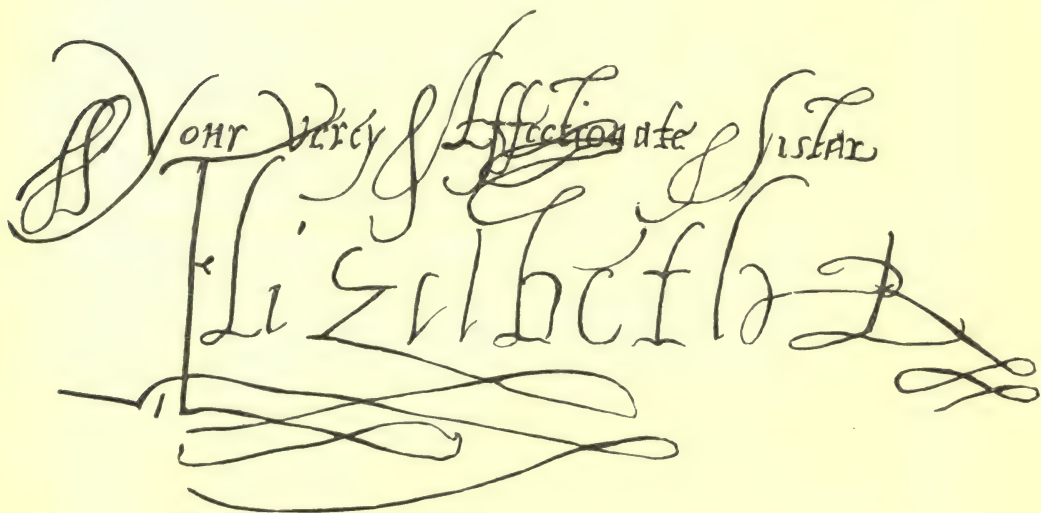 Your Verey Affectionate Sistar
Elizabeth R